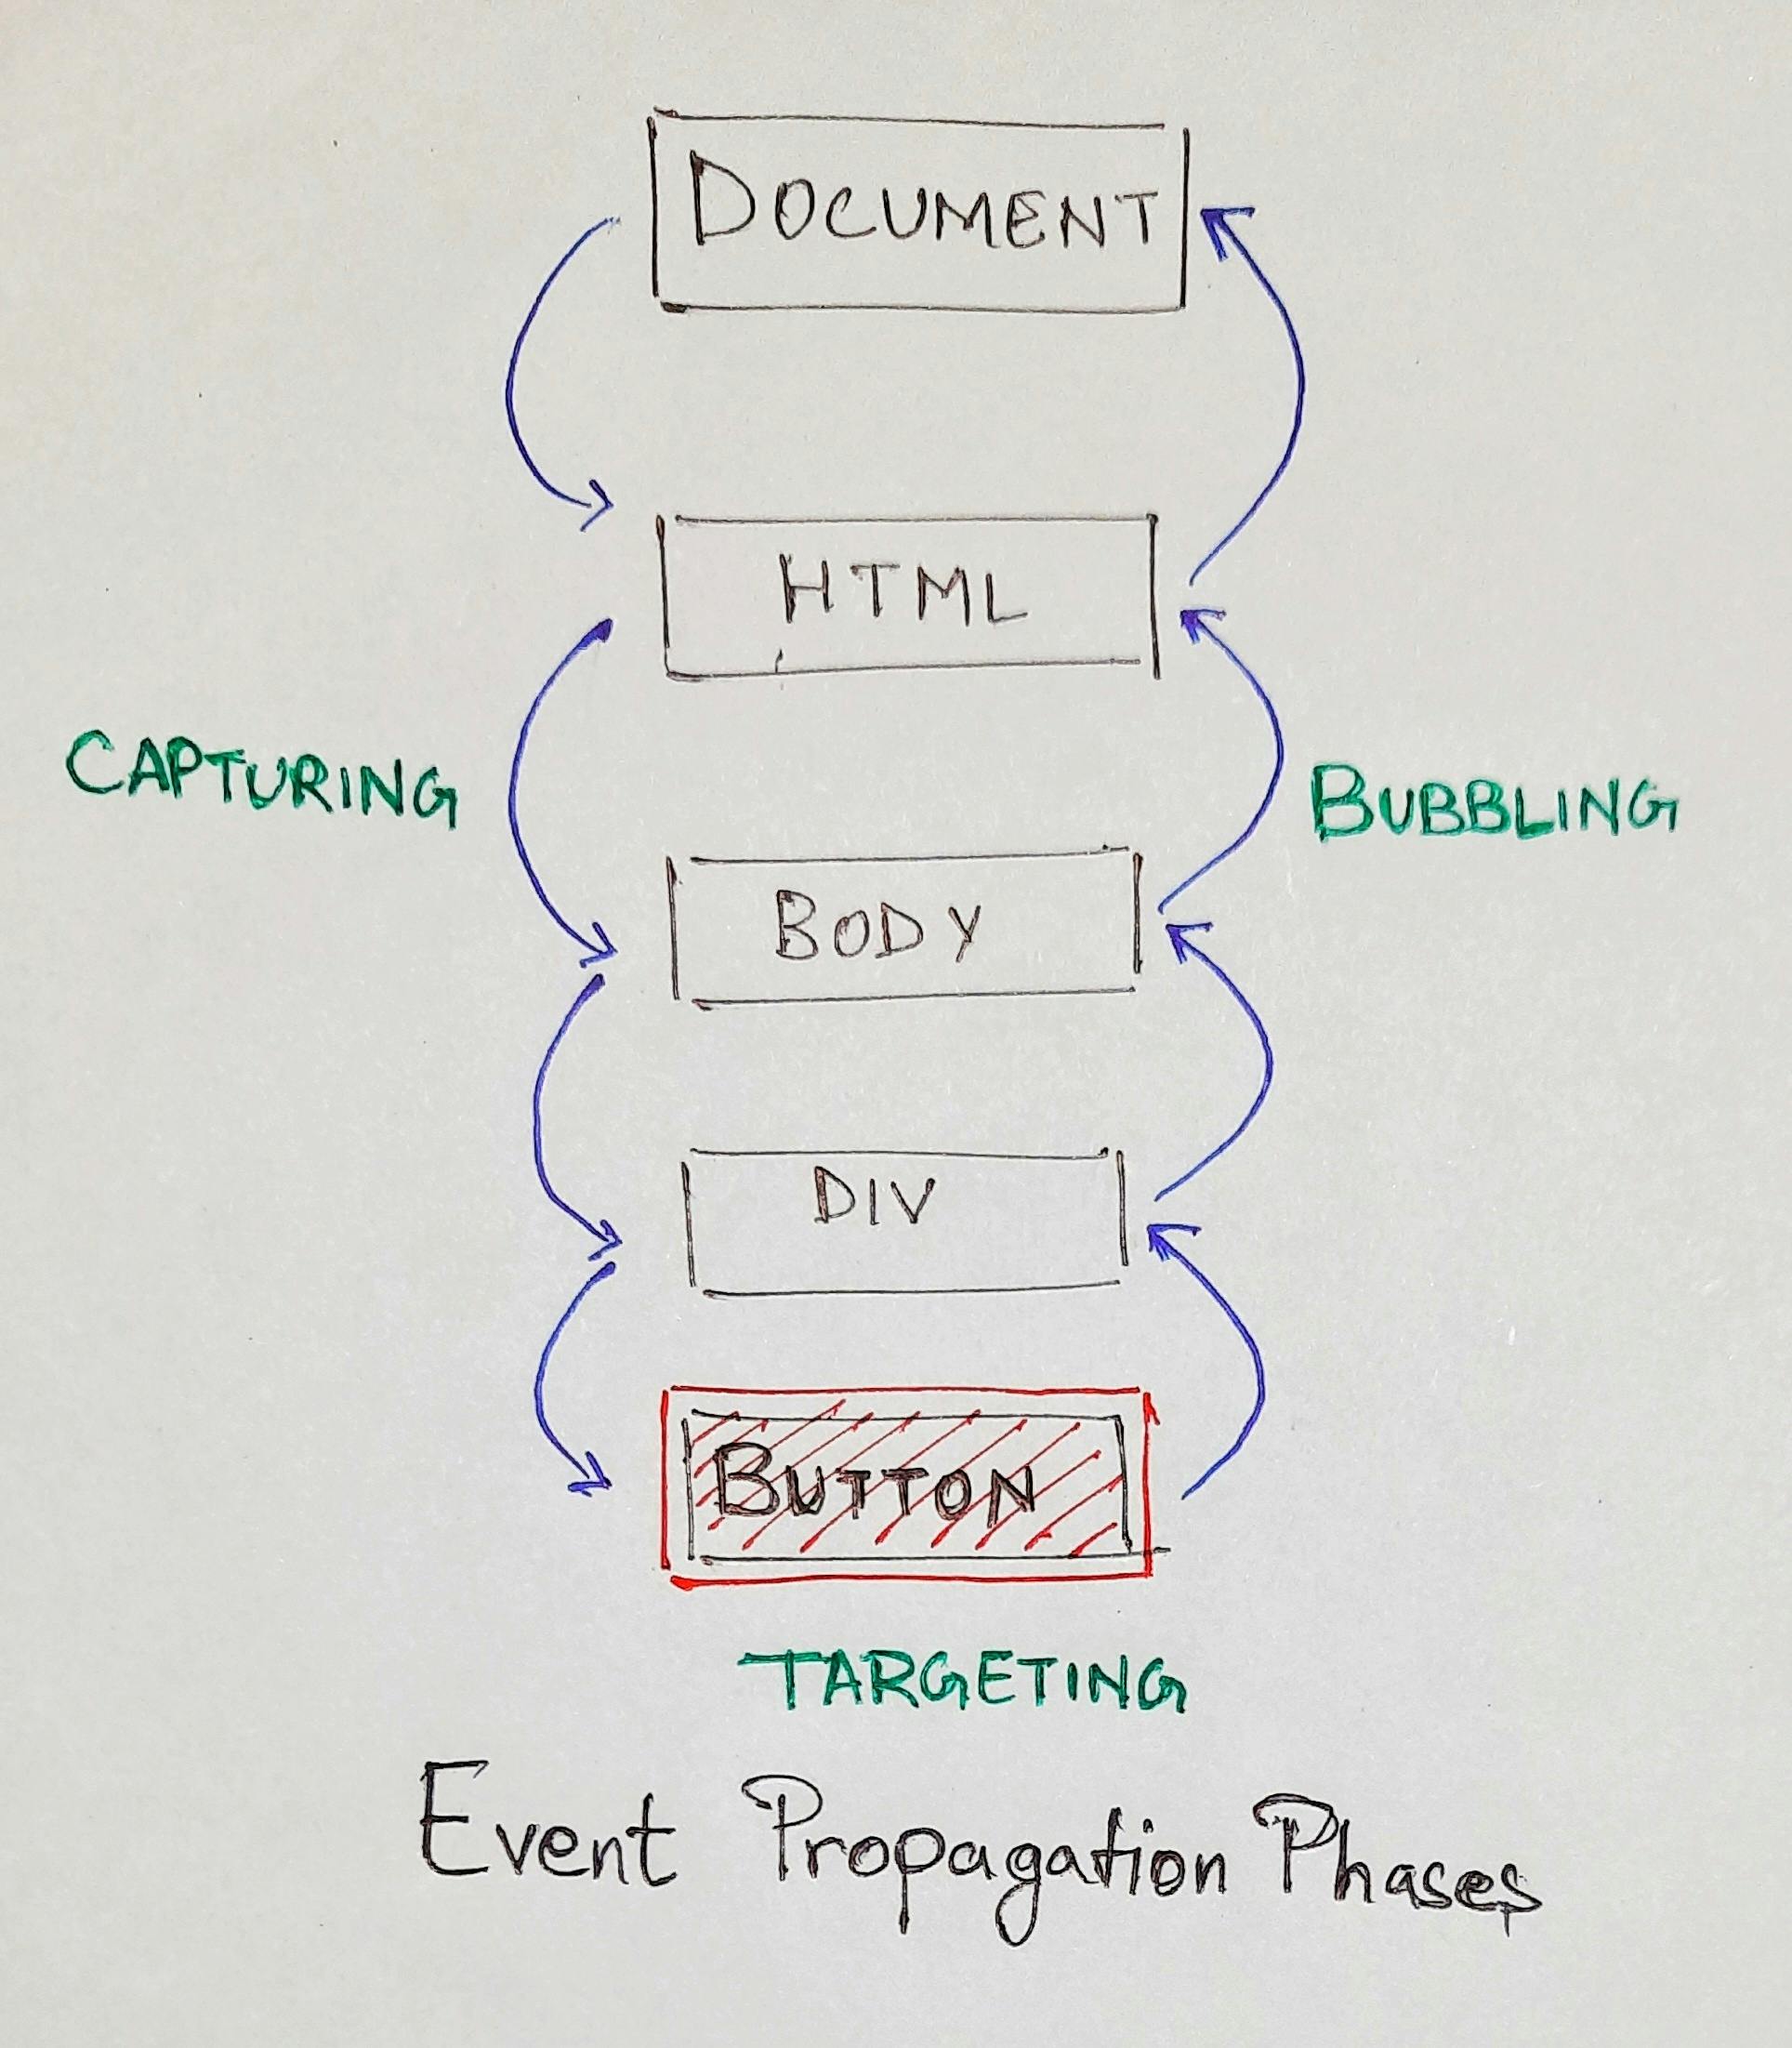 DOCUMENT
HTML
CAPTURING
BUBBLING
BODY
DIV
BUTTON
TARGETING
Event Propagation Phases